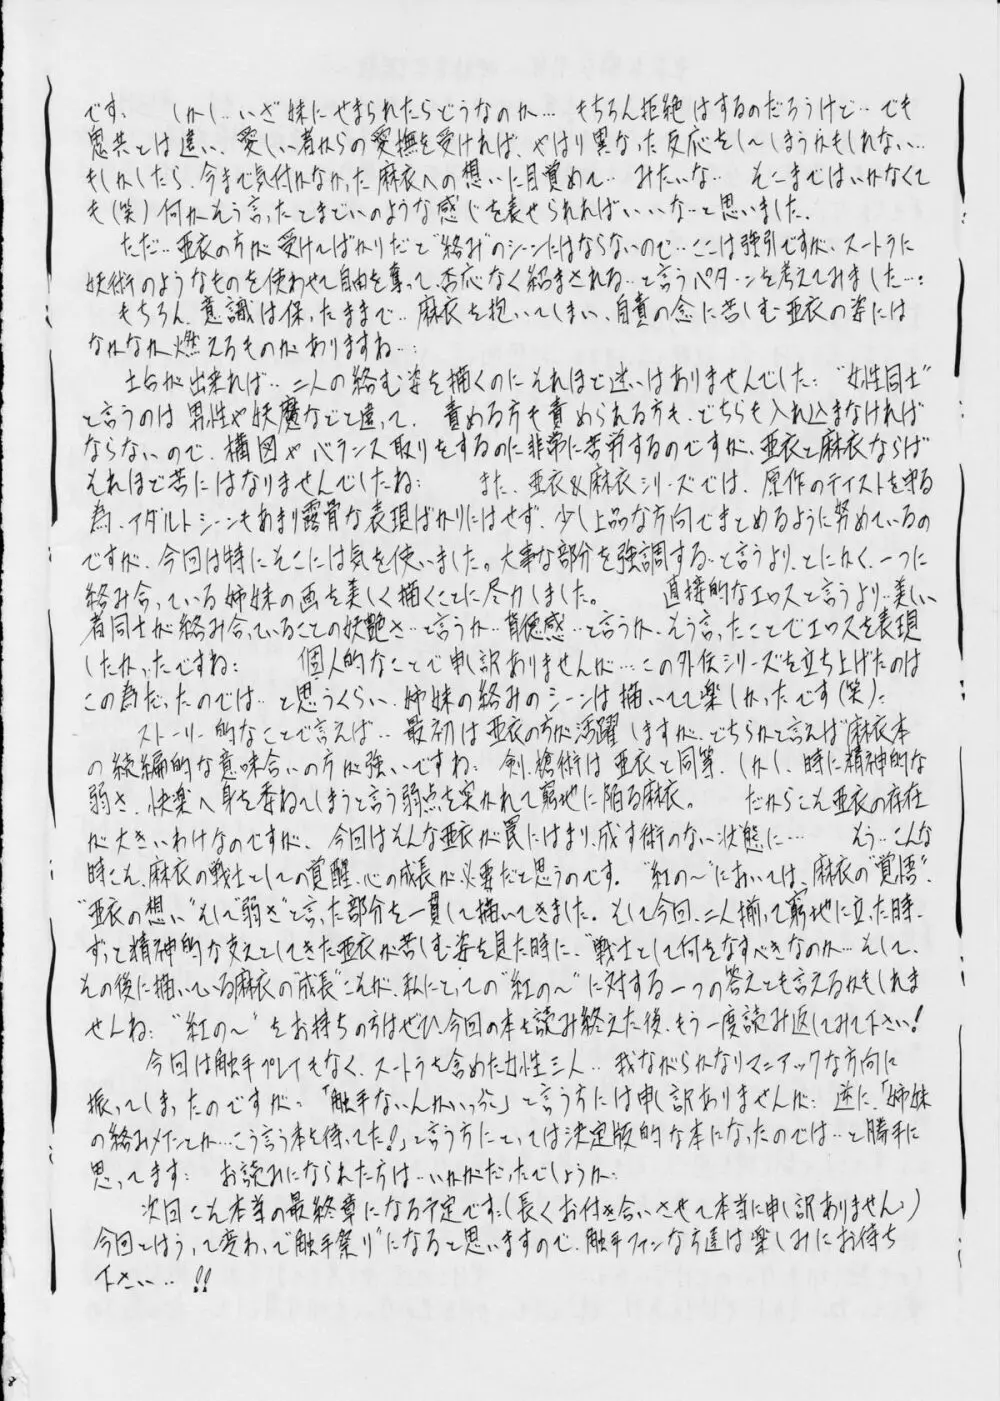 です。 しかし‥いざ妹にせまられたらどうなのか… もちろん拒絶はするのだろうけど‥でも
鬼共とは違い、愛しい者からの愛撫を受ければ、やはり異なった反応をしてしまうかもしれない…
もしかしたら、今まで気付かなかった麻衣への想いに目覚めて‥ みたいな‥ そこまではいかなくて
も(笑)何かそう言ったとまどいのような感じを表せられればいいな～と思いました.
ただ‥亜衣の方が受けてばかりだと"絡み"のシーンにはならないので‥ここは強引ですが、スートラに
妖術のようなものを使わせて自由を奪って、否応なく絡まされる‥と言うパターンを考えてみました…:
もちろん、意識は保ったままで‥麻衣を抱いてしまい、自責の念に苦しむ亜衣の姿には
なかなか燃えるものがありますね…:
土台が出来れば‥二人の絡む姿を描くのにそれほど迷いはありませんでした: "女性同士"
と言うのは男性や妖魔などと違って、責める方も責められる方も、どちらも入れ込まなければ
ならないので、構図やバランス取りをするのに非常に苦労するのですが、亜衣と麻衣ならば
それほど苦にはなりませんでしたね: また、亜衣&麻衣シリーズでは、原作のテイストを守る
為、アダルトシーンもあまり露骨な表現ばかりにはせず、少し上品な方向でまとめるように努めているの
ですが、今回は特にそこには気を使いました。大事な部分を強調する‥と言うより、とにかく、一つに
絡み合っている姉妹の画を美しく描くことに尽力しました。 直接的なエロスと言うより‥美しい
者同士が絡み合っていることの妖艶さ‥と言うか‥背徳感‥と言うか、そう言ったことでエロスを表現
したかったですね: 個人的なことで申し訳ありませんが…この外伝シリーズを立ち上げたのは
この為だったのでは‥と思うくらい、姉妹の絡みのシーンは描いてて楽しかったです(笑):
ストーリー的なことで言えば‥ 最初は亜衣の方が活躍しますが、どちらかと言えば麻衣本
の続編的な意味合いの方が強いですね: 剣、槍術は亜衣と同等、しかし、時に精神的な
弱さ、快楽へ身を委ねてしまうと言う弱点を突かれて窮地に陥る麻衣。 だからこそ亜衣の存在
が大きいわけなのですが、今回はそんな亜衣が罠にはまり、成す術のない状態に… もう‥こんな
時こそ、麻衣の戦士としての覚醒、心の成長が必要だと思うのです。"紅の～"においては、麻衣の"覚悟"、
"亜衣の想い"そして"弱さ"と言った部分を一貫して描いてきました。そして今回、二人揃って窮地に立った時、
ずっと精神的な支えとしてきた亜衣が苦しむ姿を見た時に、"戦士として何をなすべきなのか…そして、
その後に描いている麻衣の"成長"こそが、私にとっての"紅の～"に対する一つの答えとも言えるかもしれま
せんね: "紅の～"をお持ちの方はぜひ、今回の本を読み終えた後、もう一度読み返してみて下さい!
今回は触手プレイもなく、スートラも含めた女性三人‥我ながらかなりマニアックな方向に
振ってしまったのですが: 「触手ないんかいっ‼」と言う方には申し訳ありませんが: 逆に、「姉妹
の絡みメインとか…こう言う本を待ってた!」と言う方にとっては決定版的な本になったのでは‥と勝手に
思ってます: お読みになられた方は‥いかがだったでしょうか:
次回こそ本当の最終章になる予定です:(長くお付き合いさせて本当に申し訳ありません:)
今回とはうって変わって"触手祭り"になると思いますので、触手ファンな方達は楽しみにお待ち
下さい‥!!
8